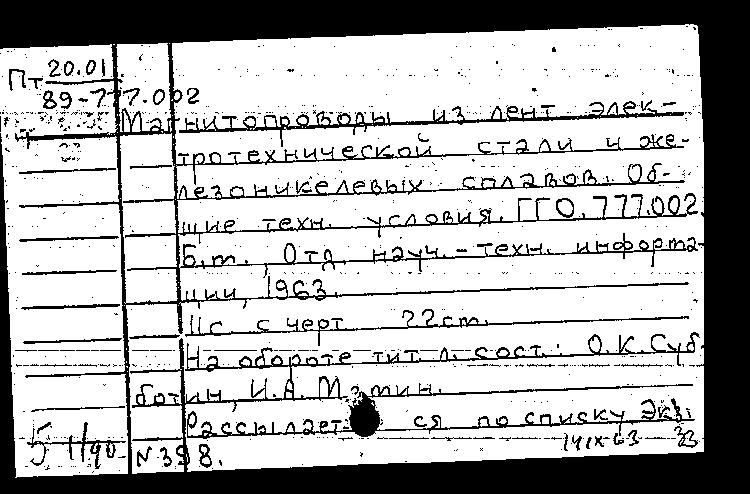 Пт 20.01
89-777.002
Магнитопроводы из лент элек-
тротехнической стали и же-
лезоникелевых сплавов. Об-
щие техн. условия. ГГО.777.002.
Б.м., Отд. науч.-техн. информа-
ции, 1963.
11с. с черт 22см.
На обороте тит. л. сост.: О.К. Суб-
ботин, И.А. Мамин.
Рассылается по списку. Экз.
N398.